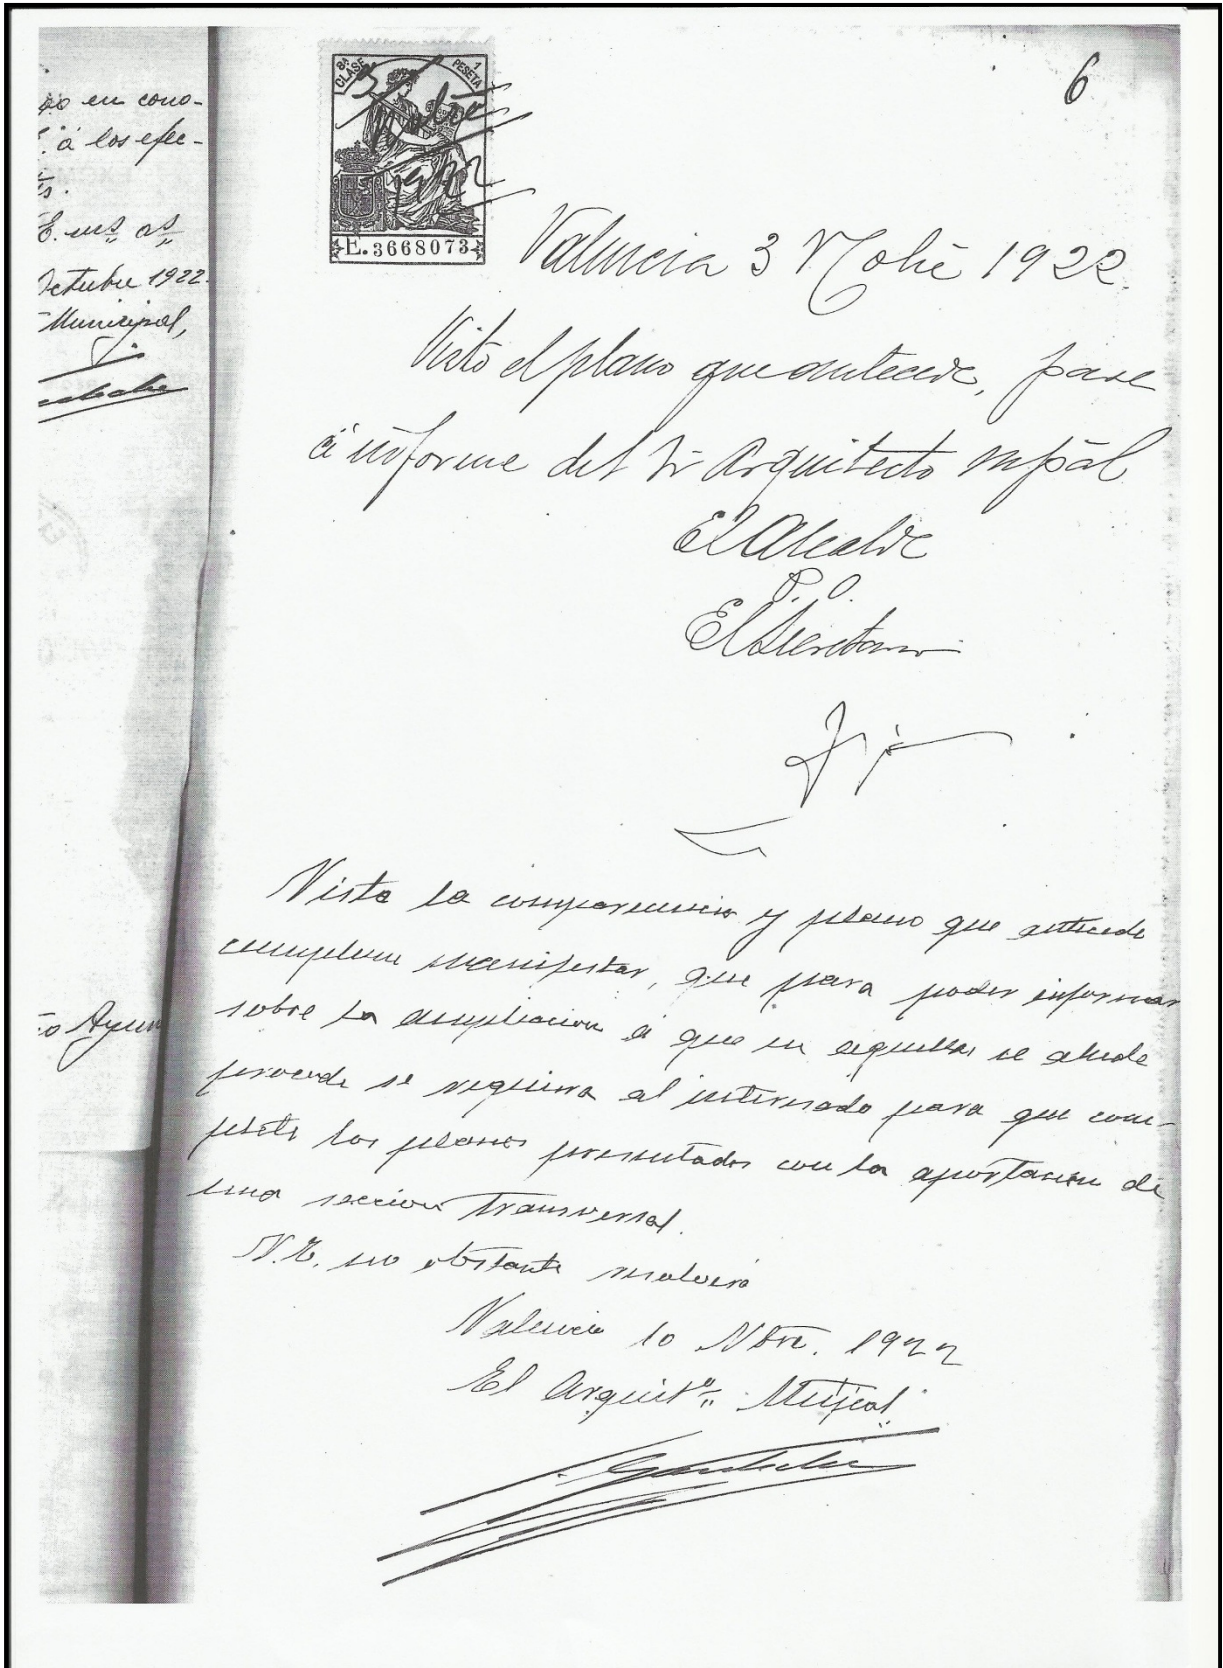 do en cono-
á los efec-
E. ms as
Octubre 1922
Municipal,
8ª CLASE
1 PESETA
3 Nbre
1922
E.3668073
6
Valencia 3 Nobre 1922.
Visto el plano que antecede, pase
á informe del Sr Arquitecto mpal
El Alcalde
P. O.
El Secretario
Vista la comparecencia y plano que antecede
cumpleme manifestar, que para poder informar
sobre la ampliacion á que en aquellas se alude
procede se requiera al interesado para que com-
plete los planos presentados con la aportación de
una seccion transversal.
V.E. no obstante resolverá
Valencia 10 Nbre. 1922
El Arquitº Municpal
o Ayun